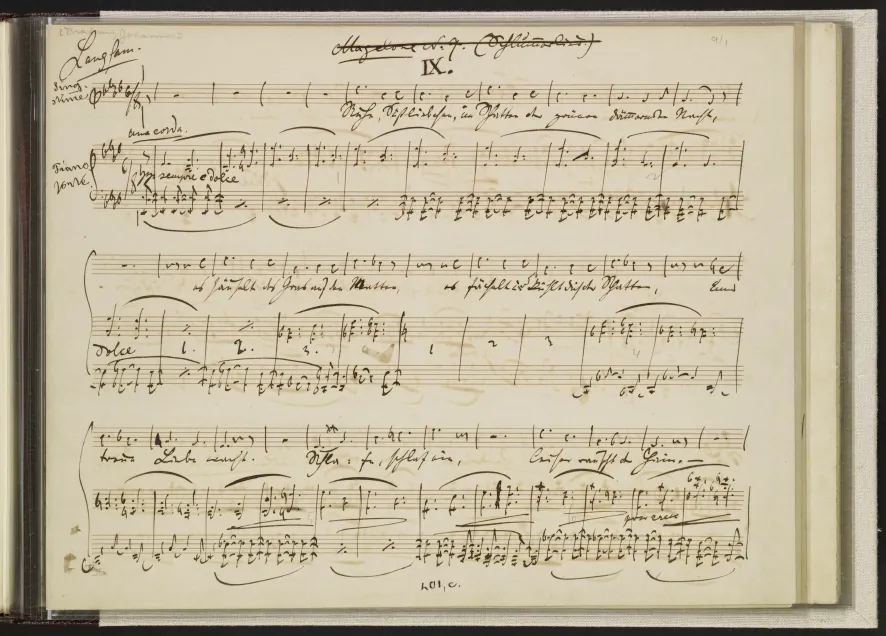 Brahms, Johannes
Magelone No. 9. (Schlummerlied.)
9/1
Langsam.
IX.
Sing-
stimme
Ruhe, Süßliebchen, im Schatten der grünen dämmernden Nacht,
una corda.
Piano
forte.
sempre e dolce
es säuselt das Gras auf den Matten, es fächelt u. kühlt dich der Schatten, und
dolce 1. 2. 3. 1 2 3 4
treue Liebe wacht. Schla- fe, schlaf ein, leiser rauscht der Hain. —
poco cresc
401, c.